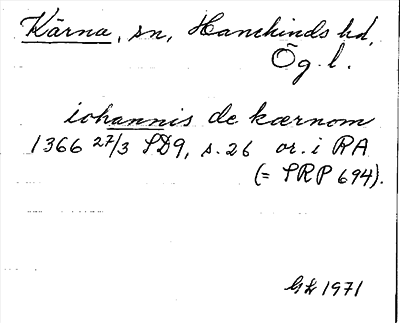 Kärna, sn, Hanekinds hd,
Ög. l.
iohannis de kærnom
1366 27/3 SD9, s. 26 or. i RA
(= SRP 694).
GL 1971